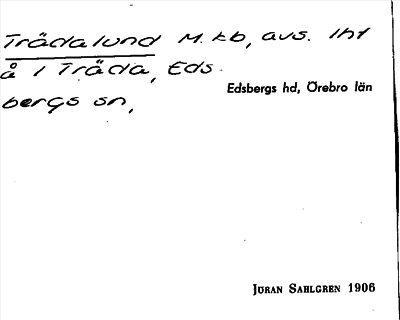 Trädalund M. kb, avs. lht
å 1 Träda, Eds-
bergs sn,
Edsbergs hd, Örebro län
JÖRAN SAHLGREN 1906